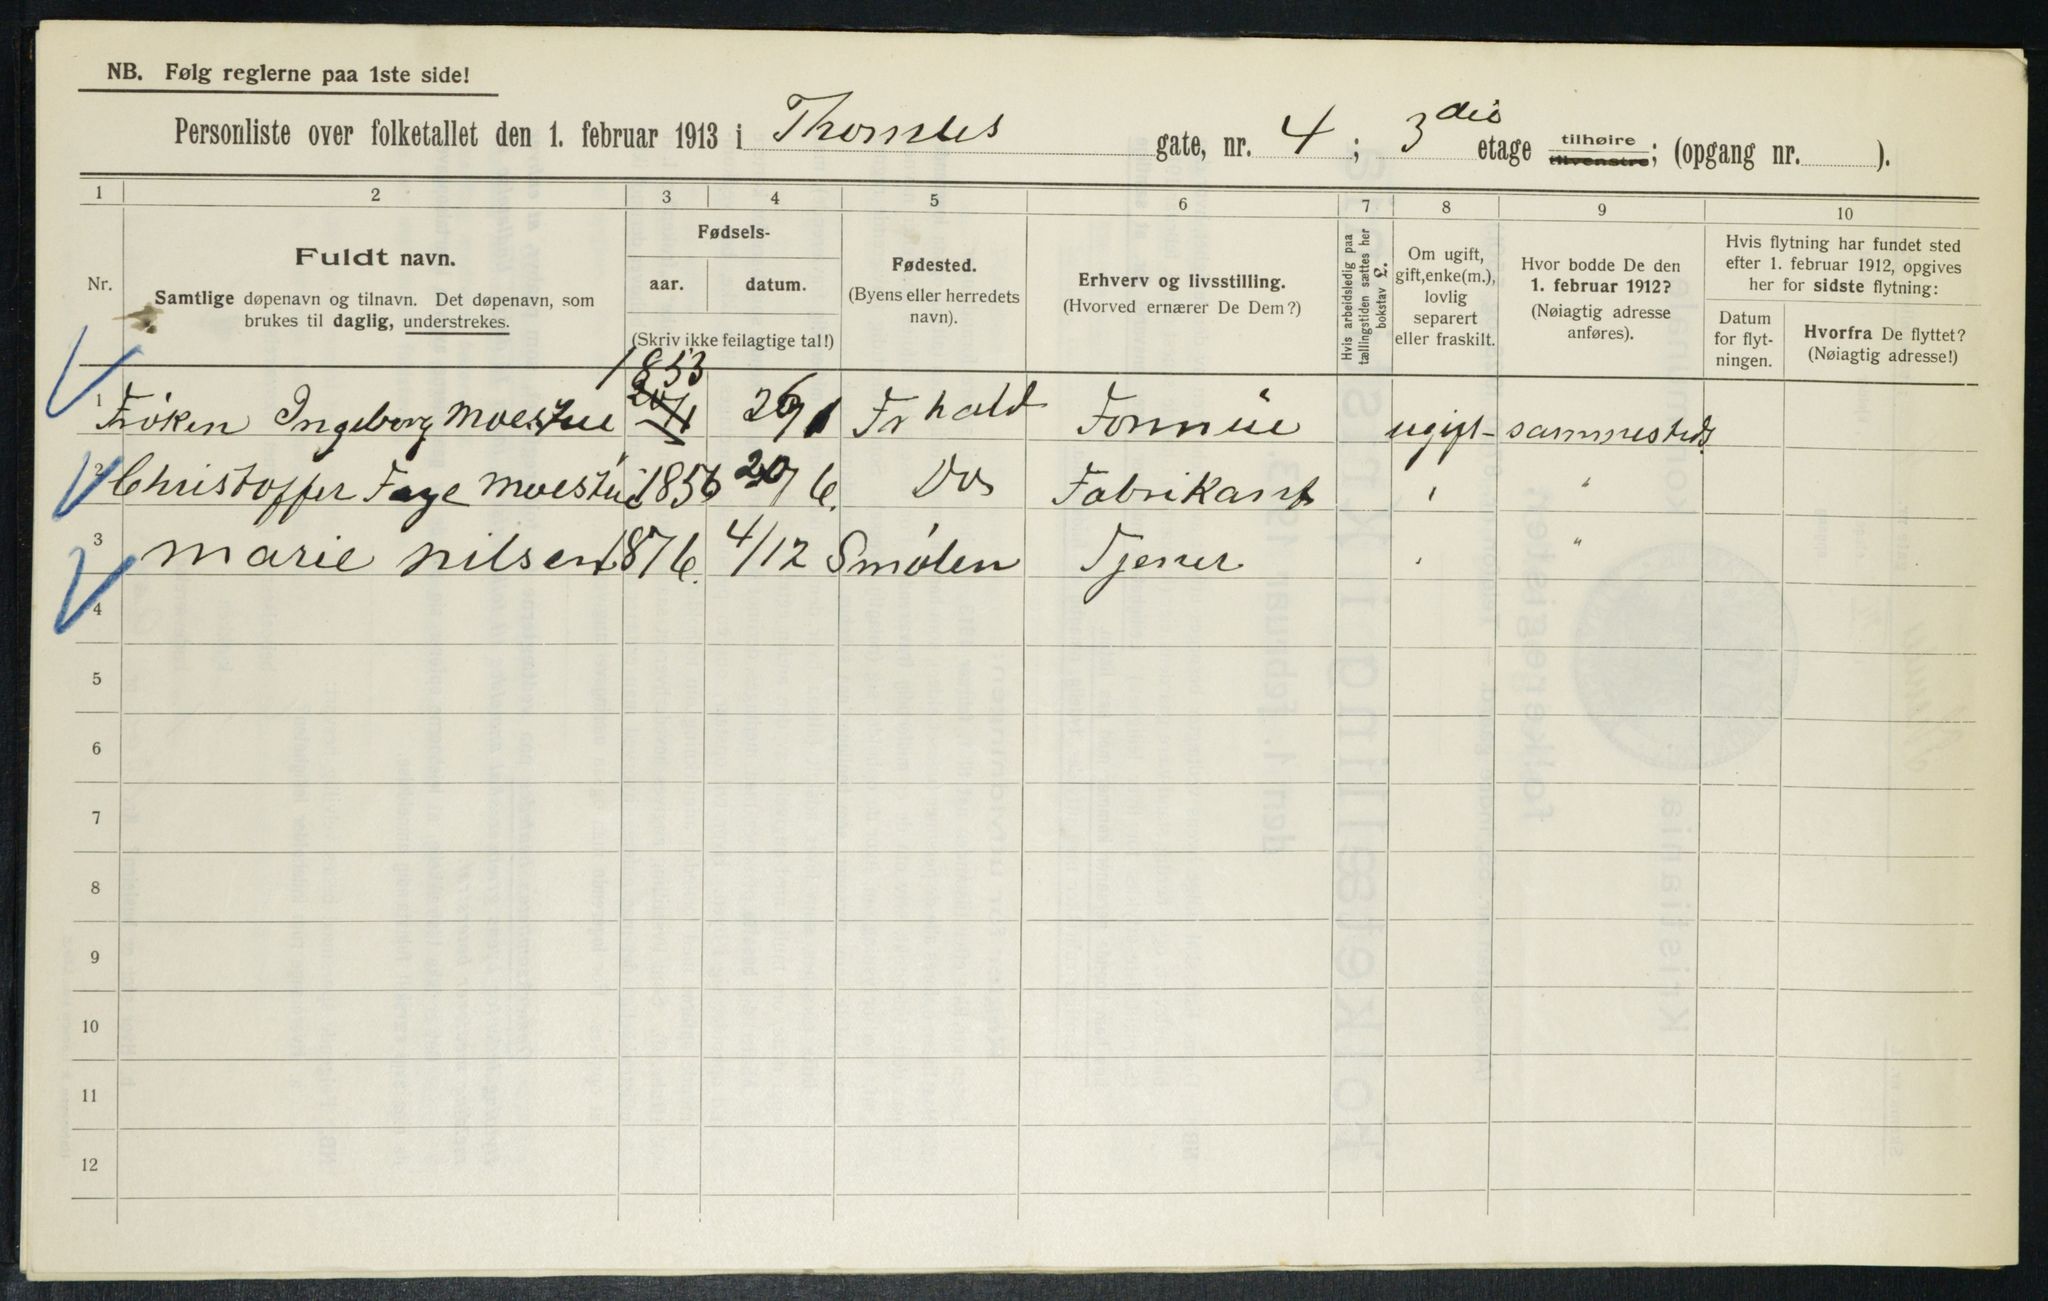 NB. Følg reglerne paa 1ste side!
Personliste over folketallet den 1. februar 1913 i Thomles gate, nr. 4 ; 3die etage tilhøire tilvenstre; (opgang nr. ).
1 2 3 4 5 6 7 8 9 10
Nr.
Fuldt navn.
Samtlige døpenavn og tilnavn. Det døpenavn, som
brukes til daglig, understrekes.
Fødsels-
aar. datum.
(Skriv ikke feilagtige tal!)
Fødested.
(Byens eller herredets
navn).
Erhverv og livsstilling.
(Hvorved ernærer De Dem?)
Hvis arbeidsledig paa
tællingstiden sættes her
bokstav L.
Om ugift,
gift, enke(m.),
lovlig
separert
eller fraskilt.
Hvor bodde De den
1. februar 1912?
(Nøiagtig adresse
anføres).
Hvis flytning har fundet sted
efter 1. februar 1912, opgives
her for sidste flytning:
Datum
for flyt-
ningen.
Hvorfra De flyttet?
(Nøiagtig adresse!)
1 Frøken Ingeborg Moestue 1853 26/1 Fr hald Formue ugift sammesteds
2 Christoffer Faye Moestue 1856 20/6. Do Fabrikant " "
3 Marie Nilsen 1876. 4/12 Smølen Tjener " "
4
5
6
7
8
9
10
11
12